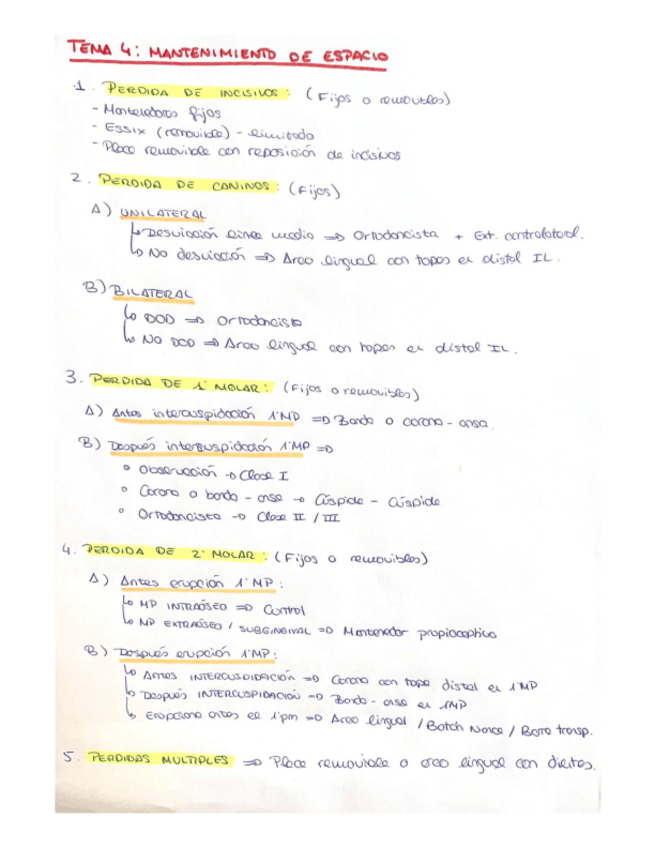 TEMA 4: MANTENIMIENTO DE ESPACIO
1. PERDIDA DE INCISIVOS: (Fijos o removibles)
- Mantenedores fijos
- Essix (removible) - limitado
- Placa removible con reposición de incisivos
2. PERDIDA DE CANINOS: (Fijos)
A) UNILATERAL
↳ Desviación linea media ⇒ Ortodoncista + Ext. contralateral.
↳ No desviación ⇒ Arco lingual con topes en distal IL.
B) BILATERAL
↳ DOD ⇒ Ortodoncista
↳ No DOD ⇒ Arco lingual con topes en distal IL.
3. PERDIDA DE 1º MOLAR: (Fijos o removibles)
A) Antes intercuspidación 1ºMP ⇒ Banda o corona - ansa.
B) Después intercuspidación 1ºMP ⇒
° Observación → Clase I
° Corona o banda - ansa → Cúspide - Cúspide
° Ortodoncista → Clase II / III
4. PERDIDA DE 2º MOLAR: (Fijos o removibles)
A) Antes erupción 1ºMP:
↳ MP INTRAÓSEO ⇒ Control
↳ MP EXTRAÓSEO / SUBGINGIVAL ⇒ Mantenedor propioceptivo
B) Después erupción 1ºMP:
↳ Antes INTERCUSPIDACIÓN ⇒ Corona con tope distal en 1ºMP
↳ Después INTERCUSPIDACIÓN ⇒ Banda - ansa en 1ºMP
↳ Erupciona antes el 1ºpm ⇒ Arco lingual / Botón Nance / Barra transp.
5. PERDIDAS MULTIPLES ⇒ Placa removible o arco lingual con dientes.